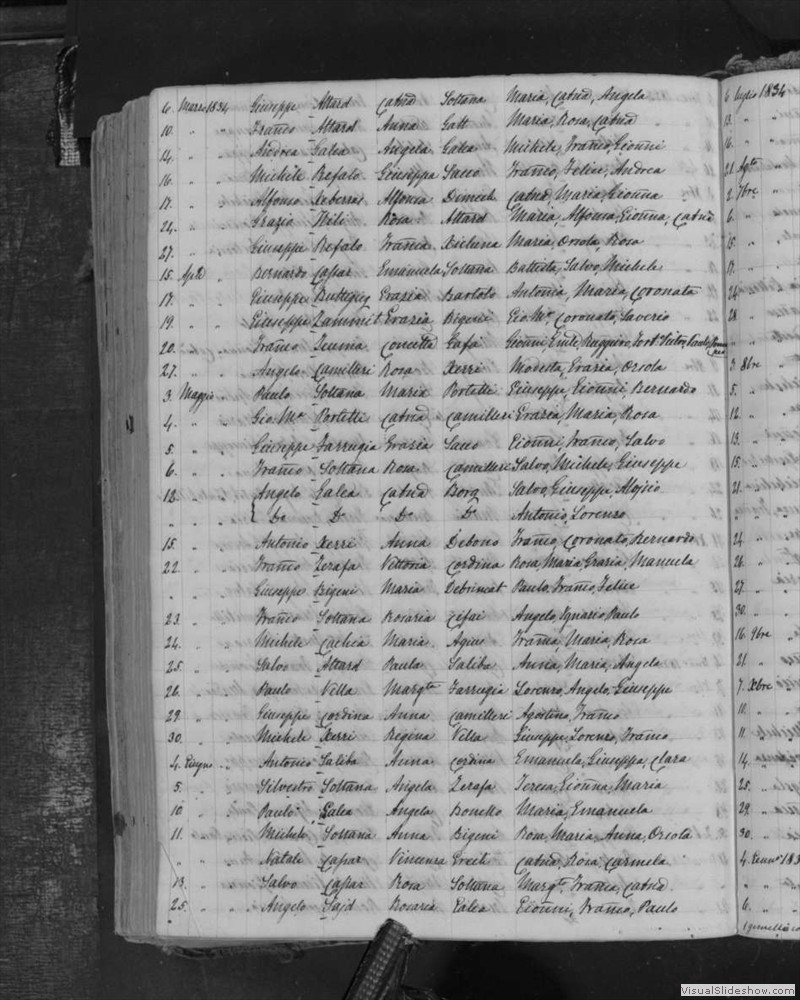 6. Marzo 1834 Giuseppe Attard Catña Soltana Maria, Catña, Angela
10. " " Franco Attard Anna Gatt Maria, Rosa, Catña
14. " " Andrea Galea Angela Galea Michele, Franco, Gionni
16. " " Michele Refalo Giuseppa Sacco Franco, Felice, Andrea
17. " " Alfonso Xeberras Alfonsa Dimech Catña, Maria, Gionna
24. " " Grazio Rosa Attard Maria, Alfonsa, Gionna, Catña
27. " " Giuseppe Refalo Francа Xicluna Maria, Orsola, Rosa
15. Aple " Bernardo Caſsar Emanuela Soltana Battista, Salvo, Michele
17. " " Giuseppe Buttigieg Grazia Bartolo Antonia, Maria, Coronata
19. " " Giuseppe Zammit Grazia Bigeni Gio Ma, Coronato, Saverio
20. " " Franco Zeuma Concetta Safai Gionni, Emle, Ruggiero, Paolo
27. " " Angelo Camilleri Rosa Xerri Modesta, Grazia, Orsola
3. Maggio " Paulo Soltana Maria Portelli Giuseppe, Gionni, Bernardo
4. " " Gio. Ma Portelli Catña Camilleri Grazia, Maria, Rosa
5. " " Giuseppe Farrugia Grazia Sacco Gionni, Franco, Salvo
6. " " Franco Soltana Rosa Camilleri Salvo, Michele, Giuseppe
12. " " Angelo Galea Catña Borg Salvo, Giuseppe, Aloisio
" " " { Do Do Do Do Antonio, Lorenzo
15. " " Antonio Xerri Anna Debono Franco, Coronato, Bernardo
22. " " Franco Zerafa Vittoria Cordina Rosa, Maria, Grazia, Manuela
" " " Giuseppe Bigeni Maria Debrincat Paulo, Franco, Felice
23. " " Franco Soltana Rosaria Cifai Angelo, Ignazio, Paulo
24. " " Michele Cachia Maria Agius Franca, Maria, Rosa
25. " " Salvo Attard Paula Saliba Anna, Maria, Angela
26. " " Paulo Vella Margta Farrugia Lorenzo, Angelo, Giuseppe
29. " " Giuseppe Cordina Anna Camilleri Agostino, Franco
30. " " Michele Xerri Regina Vella Giuseppe, Lorenzo, Franco
4. Giugno " Antonio Saliba Anna Cordina Emanuela, Giuseppa, Clara
5. " " Silvestro Soltana Angela Zerafa Teresa, Gionna, Maria
10. " " Paulo Galea Angela Bonello Maria, Emanuela
11. " " Michele Soltana Anna Bigeni Rosa, Maria, Anna, Orsola
" " " Natale Caſsar Vincenza Grech Catña, Rosa, Carmela
13. " " Salvo Caſsar Rosa Soltana Margta, Franca, Catña
25. " " Angelo Sajd Rosaria Galea Gionni, Franco, Paulo
6 Luglio 1834
13. " "
16. " "
21. Agto
2. 7bre "
6. " "
15. "
17. "
24. "
28 "
" "
3. 8bre
5. "
12. "
13. "
15. "
21. "
" "
24. "
26. "
27. "
30. "
16. 9bre
21. "
7. Xbre
10. "
11. "
14. "
25. "
29. "
30. "
4. 183
" "
6. "
VisualSlideshow.com